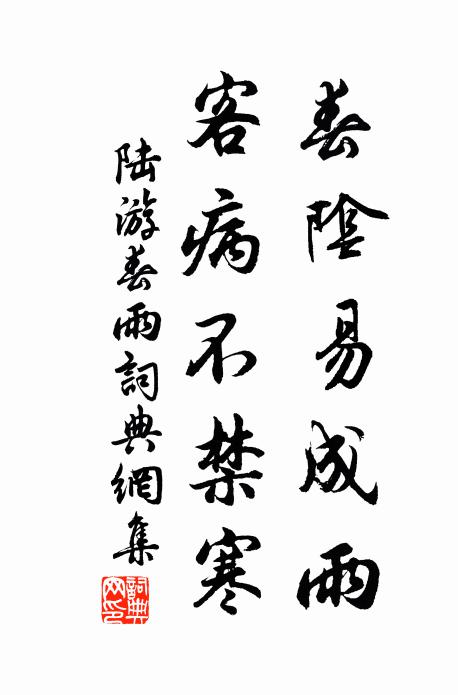 春陰易成雨
客病不禁寒
陆游春雨詞典網集
詞典